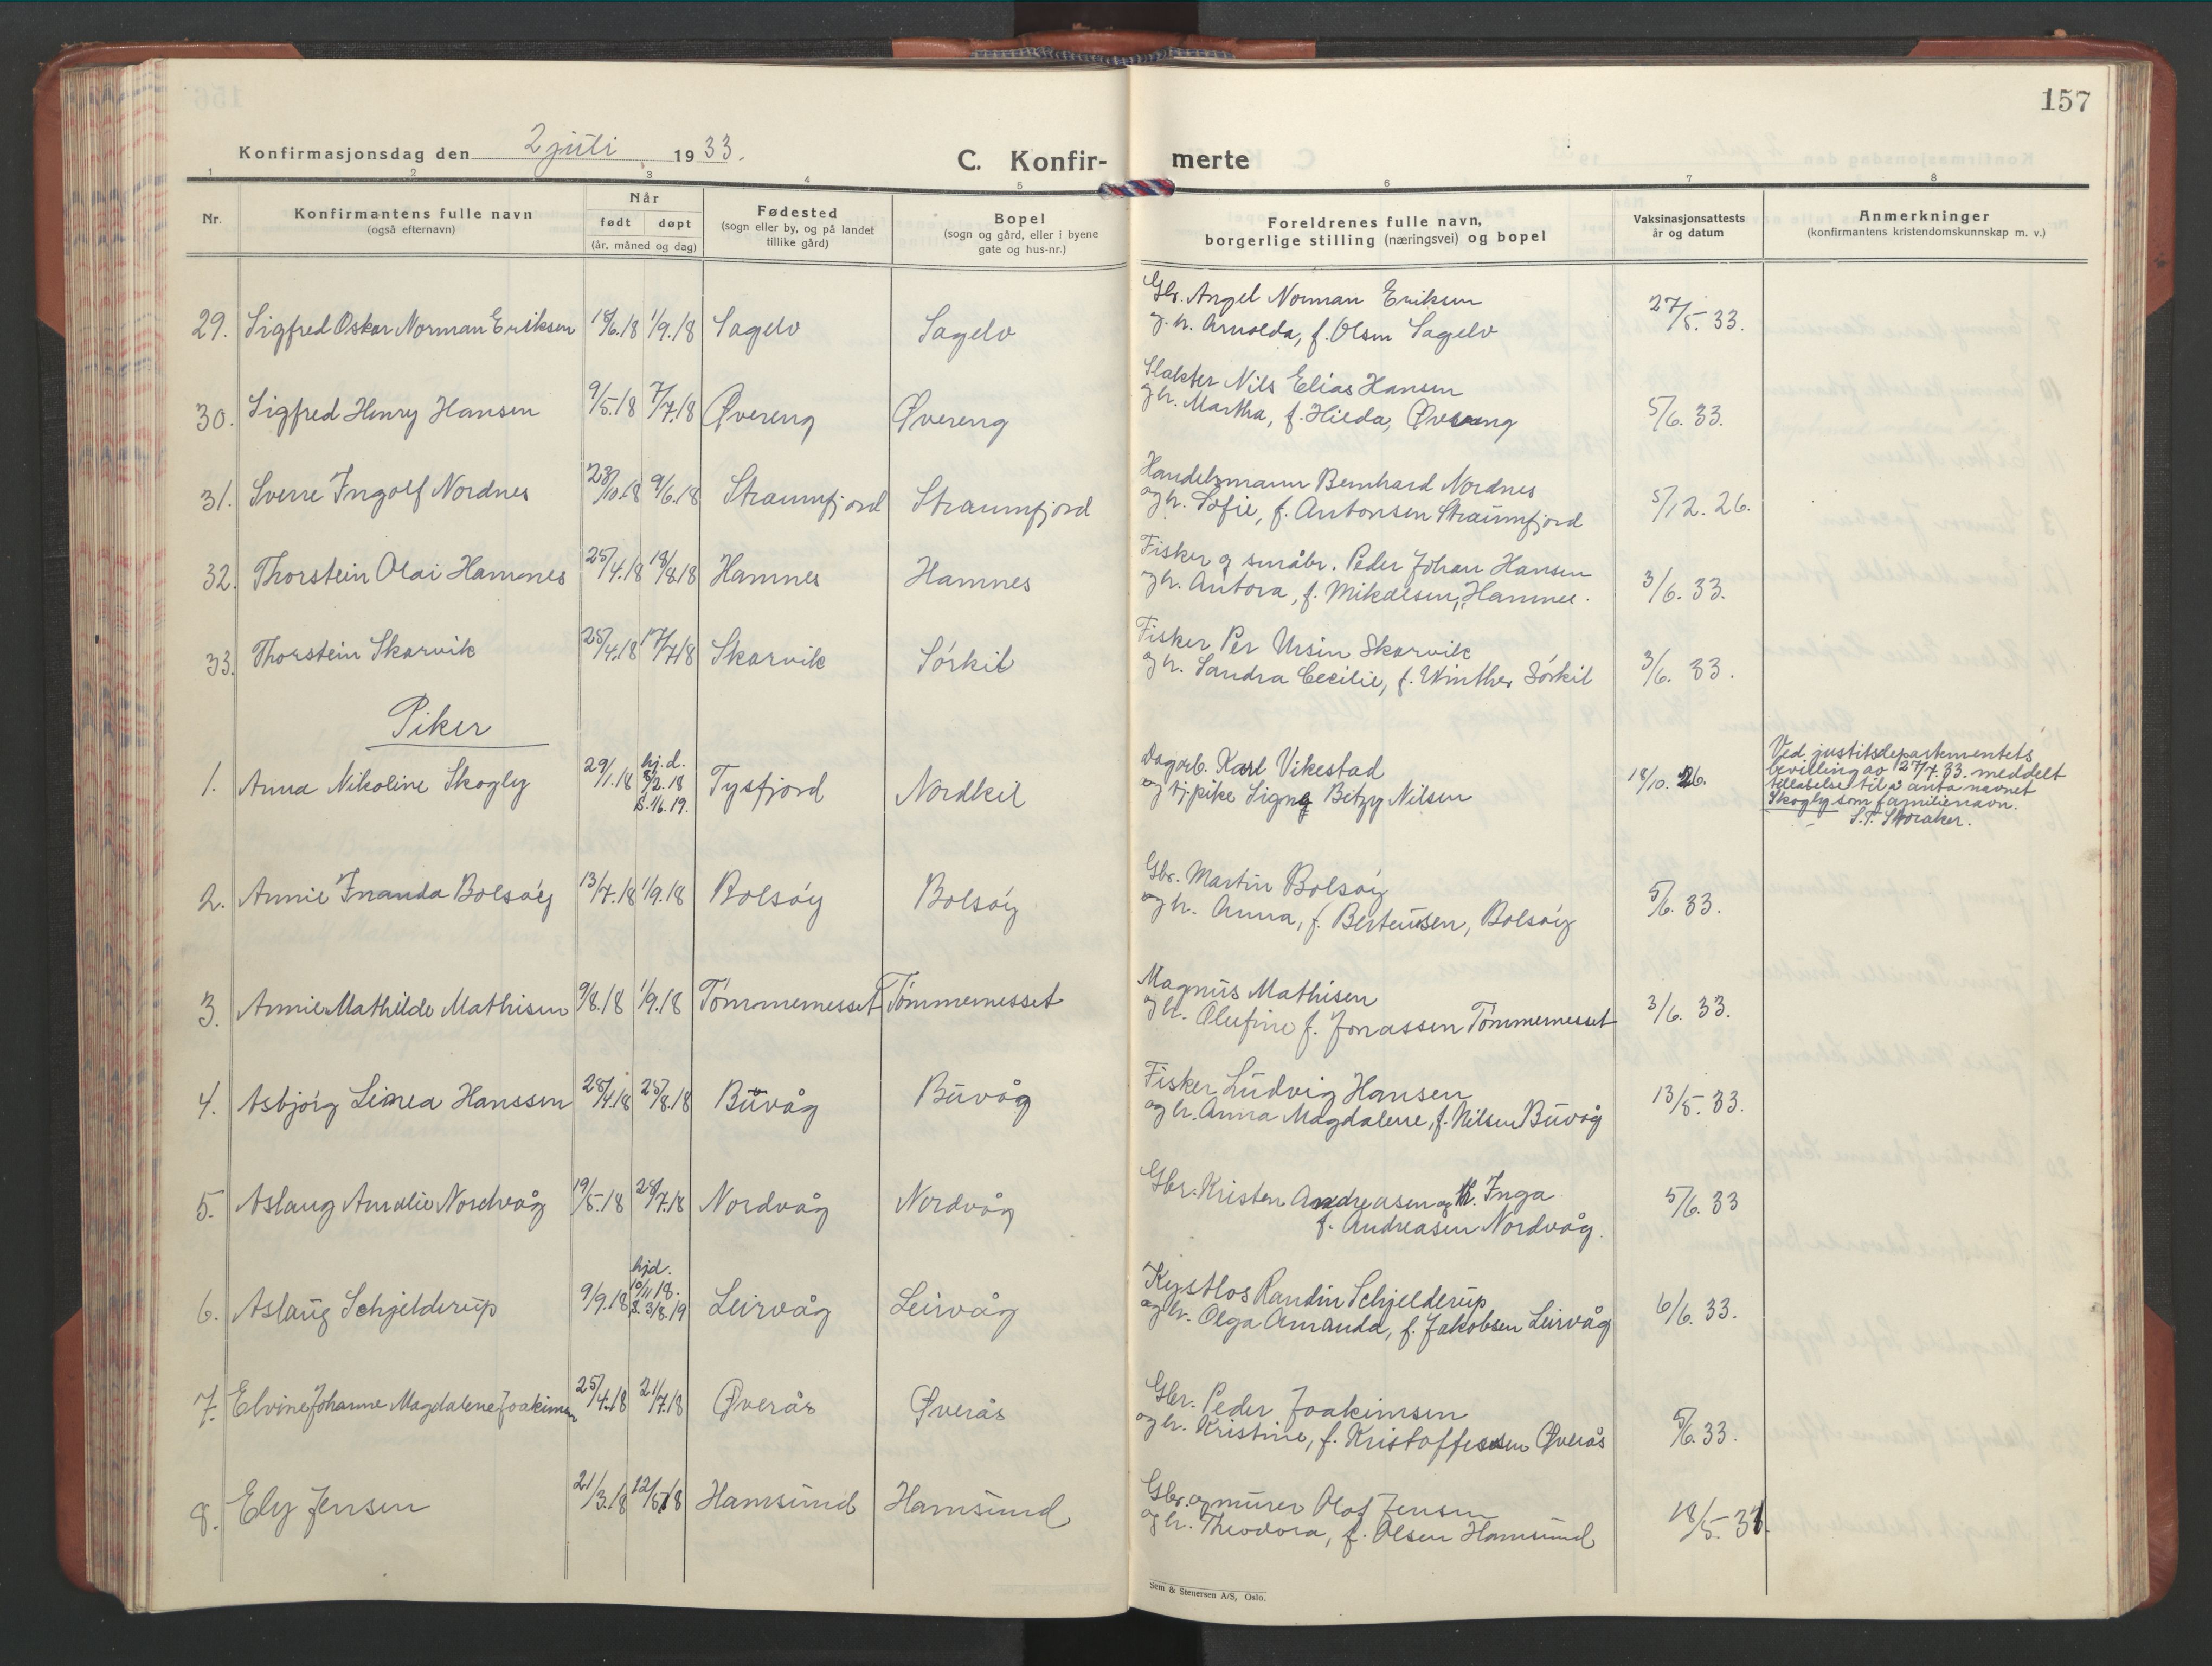 157
Konfirmasjonsdag den 2 juli 1933.
C. Konfir- merte
1 2 3 4 5 6 7 8
Nr.
Konfirmantens fulle navn
(også efternavn)
Når
født døpt
(år, måned og dag)
Fødested
(sogn eller by, og på landet
tillike gård)
Bopel
(sogn og gård, eller i byene
gate og hus-nr.)
Foreldrenes fulle navn,
borgerlige stilling (næringsvei) og bopel
Vaksinasjonsattests
år og datum
Anmerkninger
(konfirmantens kristendomskunnskap m. v.)
29. Sigfred Oskar Norman Eriksen 18/6.18 1/9.18 Sagelv Sagelv
Gbr. Angel Norman Eriksen
og h. Arnolda, f. Olsen Sagelv
27/5. 33.
30. Sigfred Henry Hansen 9/5.18 7/7.18 Øvereng Øvereng
Slakter Nils Elias Hansen
og h. Martha, f. Hilda, Øvereng
5/6. 33.
31. Sverre Ingolf Nordnes 23/10.18 9/6.18 Straumfjord Straumfjord
Handelsmann Bernhard Nordnes
og h. Sofie, f. Antonsen Straumfjord
5/12. 26.
32. Thorstein Olai Hamnes 25/4.18 18/8.18 Hamnes Hamnes
Fisker og småbr. Peder Johan Hansen
og h. Antora, f. Mikalsen, Hamnes.
3/6. 33.
33. Thorstein Skarvik 25/4.18 17/7.18 Skarvik Sørkil
Fisker Per Ursin Skarvik
og h. Sandra Cecilie, f. Winther Sørkil
3/6. 33.
Piker
1. Anna Nikoline Skogly 29/1.18 hj.d. 8/2.18 S. 1/6.19. Tysfjord Nordkil
Dagarb. Karl Vikestad
og tj.pike Signe Betzy Nilsen
18/10. 26.
Ved justitsdepartementets
bevilling av 27/4.33. meddelt
tillatelse til å anta navnet
Skogly som familienavn.
S.T. Storaker.
2. Annie Inanda Bolsøy 13/7.18 1/9.18 Bolsøy Bolsøy
Gbr. Martin Bolsøy
og h. Anna, f. Berteusen, Bolsøy
5/6. 33.
3. Annie Mathilde Mathisen 9/8.18 1/9.18 Tømmernesset Tømmernesset
Magnus Mathisen
og h. Olufine f. Jonassen Tømmernesset
3/6. 33.
4. Asbjørg Linea Hanssen 28/4.18 25/8.18 Buvåg Buvåg
Fisker Ludvig Hansen
og h. Anna Magdalene, f. Nilsen Buvåg
13/5. 33.
5. Aslaug Amalie Nordvåg 19/5.18 28/7.18 Nordvåg Nordvåg
Gbr. Kristen Andreasen og h. Inga
f. Andreasen Nordvåg.
5/6. 33
6. Aslaug Schjelderup 9/9.18 hjd. 10/11 18. S. 3/8.19 Leirvåg Leirvåg
Kystlos Randin Schjelderup
og h. Olga Amanda, f. Jakobsen Leirvåg
6/6. 33.
7. Elvine Johanne Magdalene Joakimsen 25/4.18 21/7.18 Øverås Øverås
Gbr. Peder Joakimsen
og h. Kristine, f. Kristoffersen Øverås
5/6. 33.
8. Ely Jensen 21/3.18 12/5.18 Hamsund Hamsund
Gbr. og murer Olaf Jensen
og h. Theodora, f. Olsen Hamsund
18/5. 31.
Sem & Stenersen A/S, Oslo.